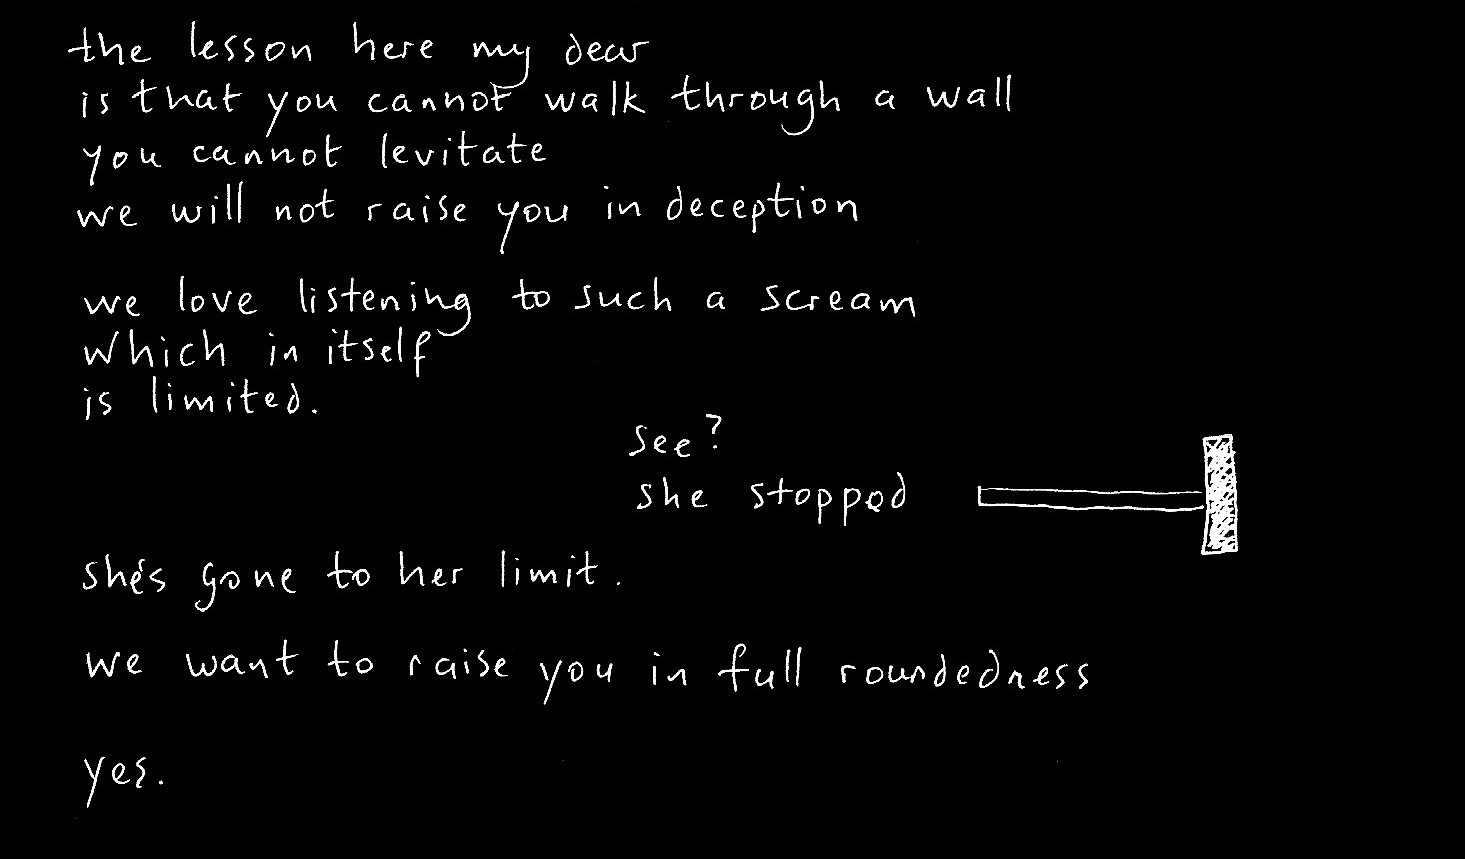 the lesson here my dear
is that you cannot walk through a wall
you cannot levitate
we will not raise you in deception
we love listening to such a scream
which in itself
is limited.
see?
she stopped
she's gone to her limit.
we want to raise you in full roundedness
yes.